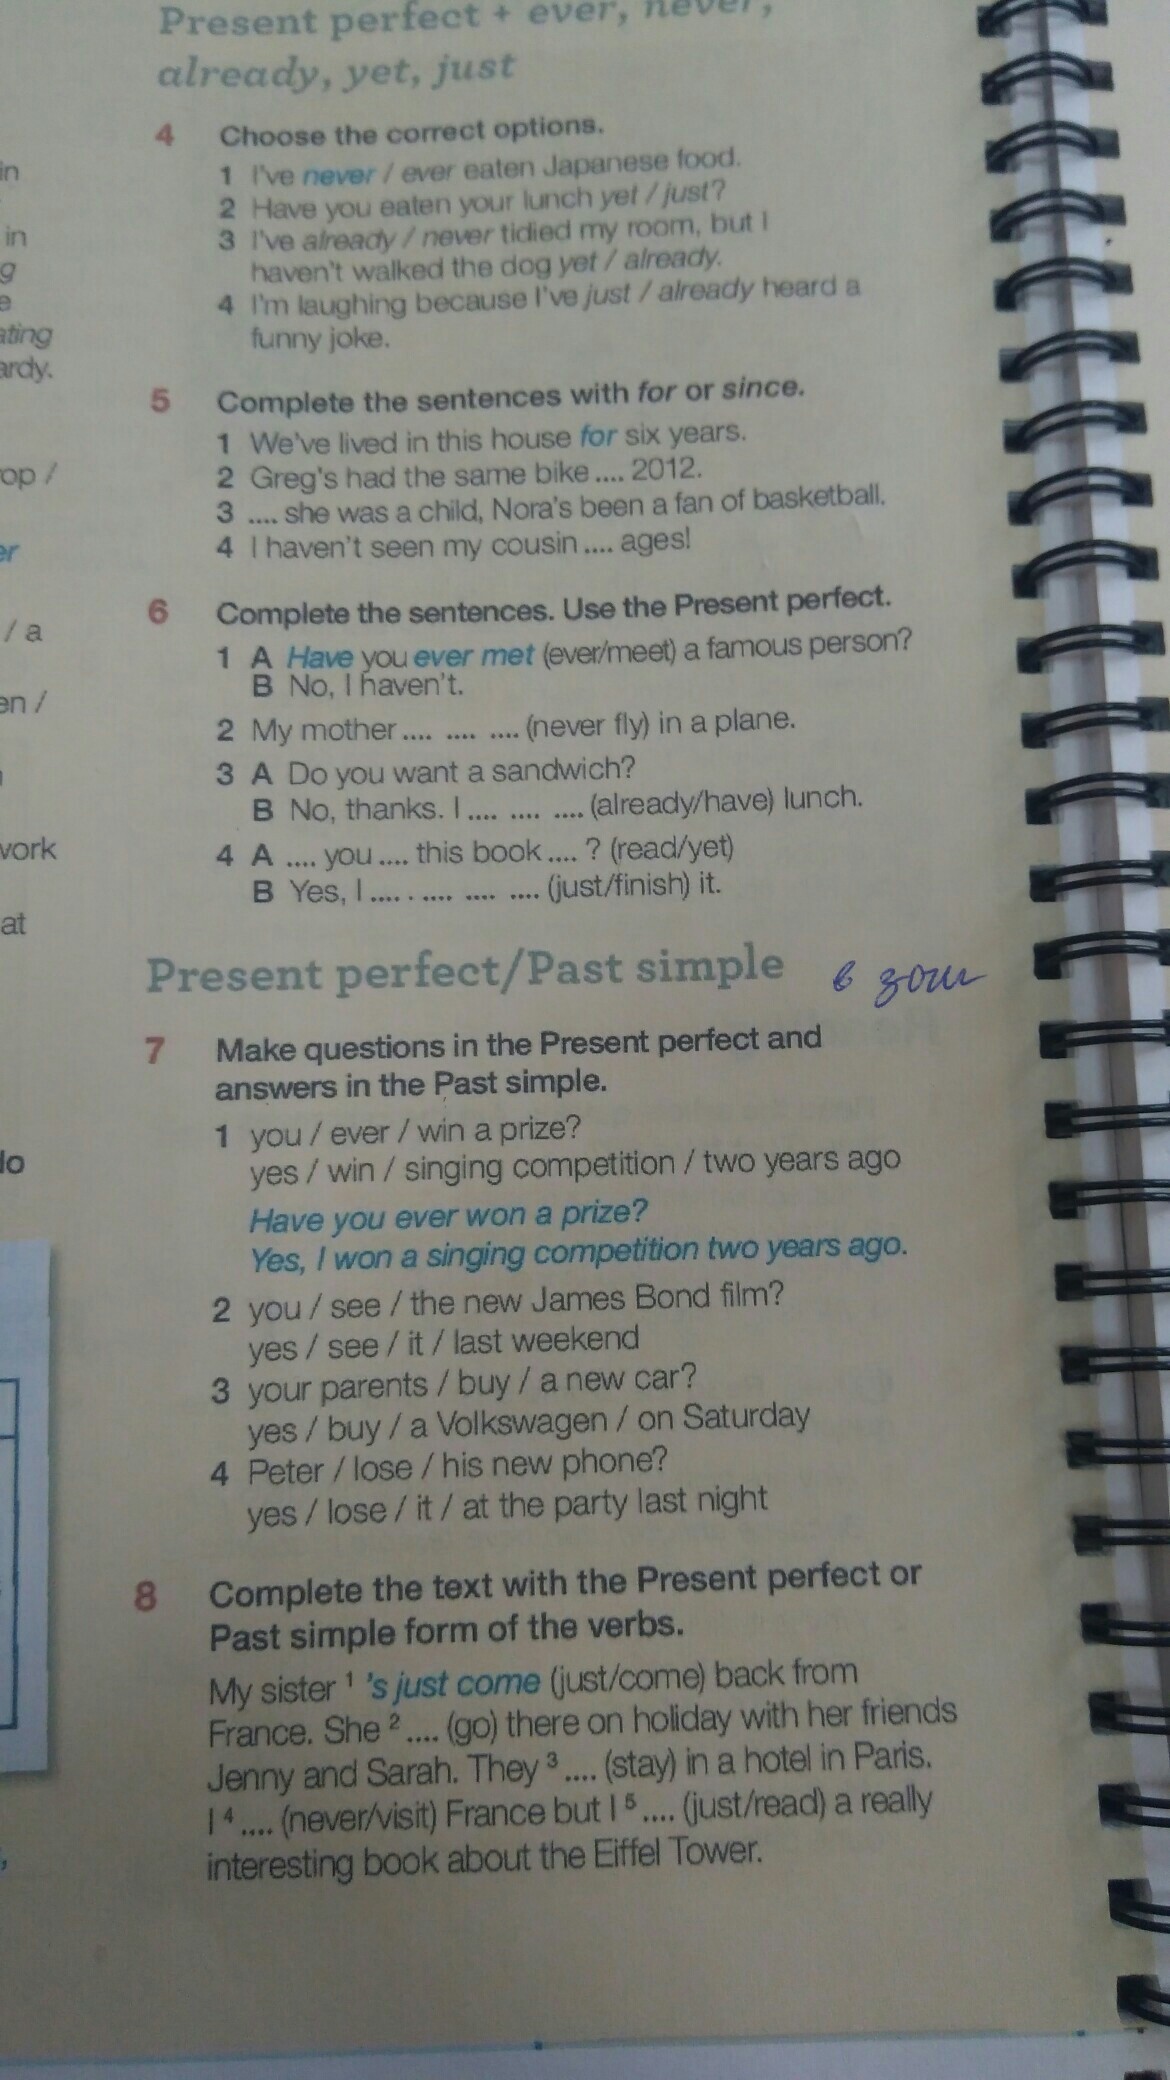 Present perfect + ever, never,
already, yet, just
4 Choose the correct options.
1 I've never / ever eaten Japanese food.
2 Have you eaten your lunch yet / just?
3 I've already / never tidied my room, but I
haven't walked the dog yet / already.
4 I'm laughing because I've just / already heard a
funny joke.
5 Complete the sentences with for or since.
1 We've lived in this house for six years.
2 Greg's had the same bike .... 2012.
3 .... she was a child, Nora's been a fan of basketball.
4 I haven't seen my cousin .... ages!
6 Complete the sentences. Use the Present perfect.
1 A Have you ever met (ever/meet) a famous person?
B No, I haven't.
2 My mother .... .... .... (never fly) in a plane.
3 A Do you want a sandwich?
B No, thanks. I .... .... .... (already/have) lunch.
4 A .... you .... this book .... ? (read/yet)
B Yes, I .... . .... .... .... (just/finish) it.
Present perfect/Past simple
7 Make questions in the Present perfect and
answers in the Past simple.
1 you / ever / win a prize?
yes / win / singing competition / two years ago
Have you ever won a prize?
Yes, I won a singing competition two years ago.
2 you / see / the new James Bond film?
yes / see / it / last weekend
3 your parents / buy / a new car?
yes / buy / a Volkswagen / on Saturday
4 Peter / lose / his new phone?
yes / lose / it / at the party last night
8 Complete the text with the Present perfect or
Past simple form of the verbs.
My sister ¹ 's just come (just/come) back from
France. She ² .... (go) there on holiday with her friends
Jenny and Sarah. They ³ .... (stay) in a hotel in Paris.
I ⁴ .... (never/visit) France but I ⁵ .... (just/read) a really
interesting book about the Eiffel Tower.
in
in
g
e
ating
ardy.
op /
er
/ a
en /
work
at
do